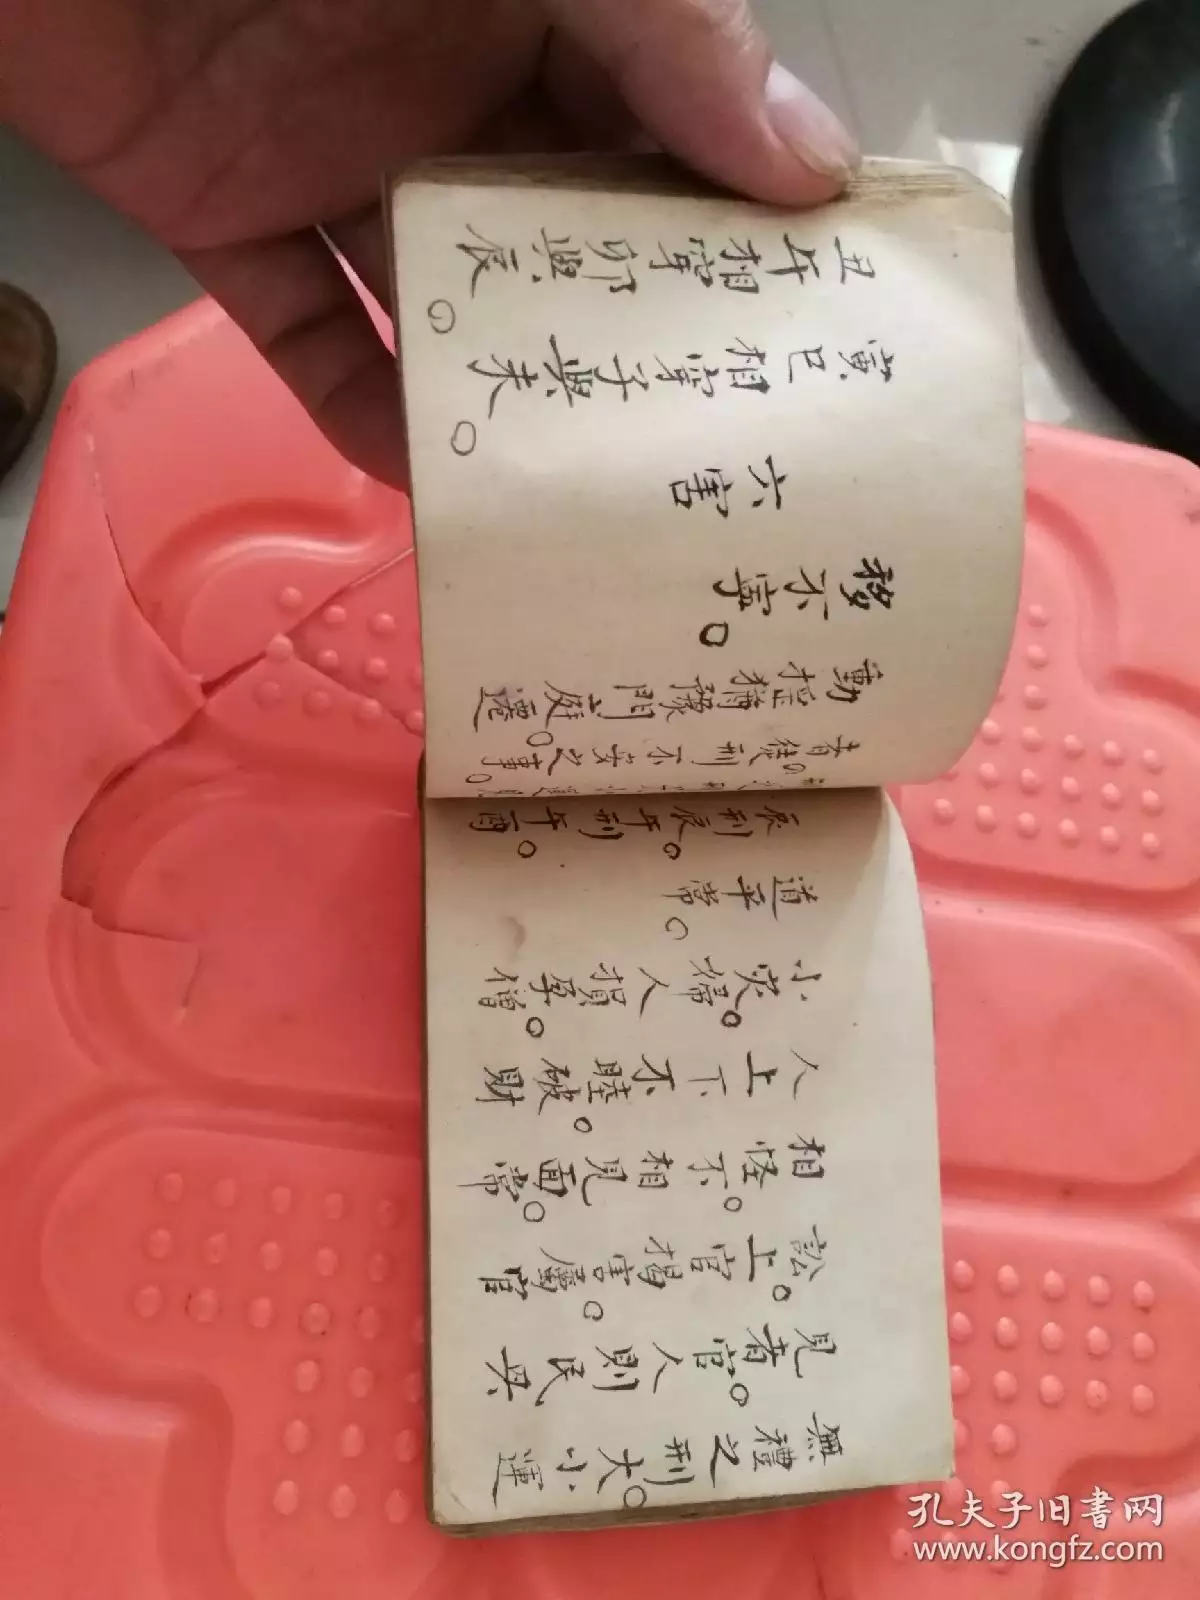 無禮之刑。大小運
見者官人。則民共
訟上官。揭害屬官。
相怪不。相見面常。
人上下不睦。破財
小災。婦人損孕。僧
道平常。
辰刑辰。午刑午。酉
者徒刑不安之事。
動搖猶豫。門庭遷
移不寧。
六害
寅巳相穿子與未。
丑午相穿卯與辰。
孔夫子旧书网
www.kongfz.com